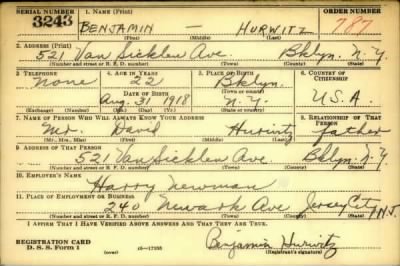 SERIAL NUMBER 1. NAME (Print) ORDER NUMBER
3243 BENJAMIN — HURWITZ 787
(First) (Middle) (Last)
2. ADDRESS (Print)
521 Van Sicklen Ave. Bklyn. N.Y.
(Number and street or R. F. D. number) (Town) (County) (State)
3. TELEPHONE 4. AGE IN YEARS 5. PLACE OF BIRTH 6. COUNTRY OF CITIZENSHIP
None 22 Bklyn.
DATE OF BIRTH (Town or county)
Aug. 31 1918 N.Y. U.S.A.
(Exchange) (Number) (Mo.) (Day) (Yr.) (State or country)
7. NAME OF PERSON WHO WILL ALWAYS KNOW YOUR ADDRESS 8. RELATIONSHIP OF THAT PERSON
Mr. David Hurwitz father
(Mr., Mrs., Miss) (First) (Middle) (Last)
9. ADDRESS OF THAT PERSON
521 Van Sicklen Ave. Bklyn. N.Y.
(Number and street or R. F. D. number) (Town) (County) (State)
10. EMPLOYER'S NAME
Harry Newman
11. PLACE OF EMPLOYMENT OR BUSINESS
240 Newark Ave Jersey City N.J.
(Number and street or R. F. D. number) (Town) (County) (State)
I AFFIRM THAT I HAVE VERIFIED ABOVE ANSWERS AND THAT THEY ARE TRUE.
REGISTRATION CARD
D. S. S. Form 1 (over) Benjamin Hurwitz
(Registrant's signature)